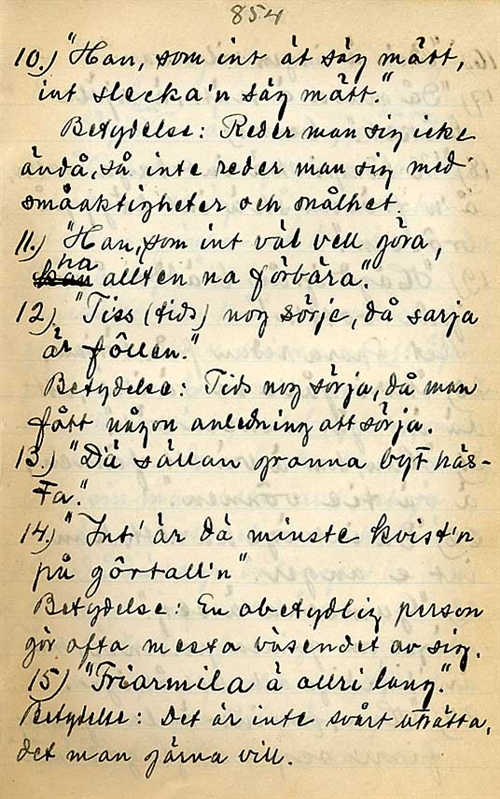 854
10.) "Han, som int åt säg mätt,
int slecka'n säg mätt."
Betydelse: Reder man sig icke
ändå, så inte reder man sig med
småaktigheter och snålhet.
11.) "Han, som int väl vell göra,
ha allten na förbära."
12.) "Tiss (tids) nog sörje, då sarja
är föllen."
Betydelse: Tids nog sörja, då man
fått någon anledning att sörja.
13.) "Dä sällan granna byt häs-
ta."
14.) "Int' är dä minste kvist'n
på görtall'n"
Betydelse: En obetydlig person
gör ofta mesta väsendet av sig.
15) "Friarmila ä allri lang."
Betydelse: Det är inte svårt uträtta,
det man gärna vill.